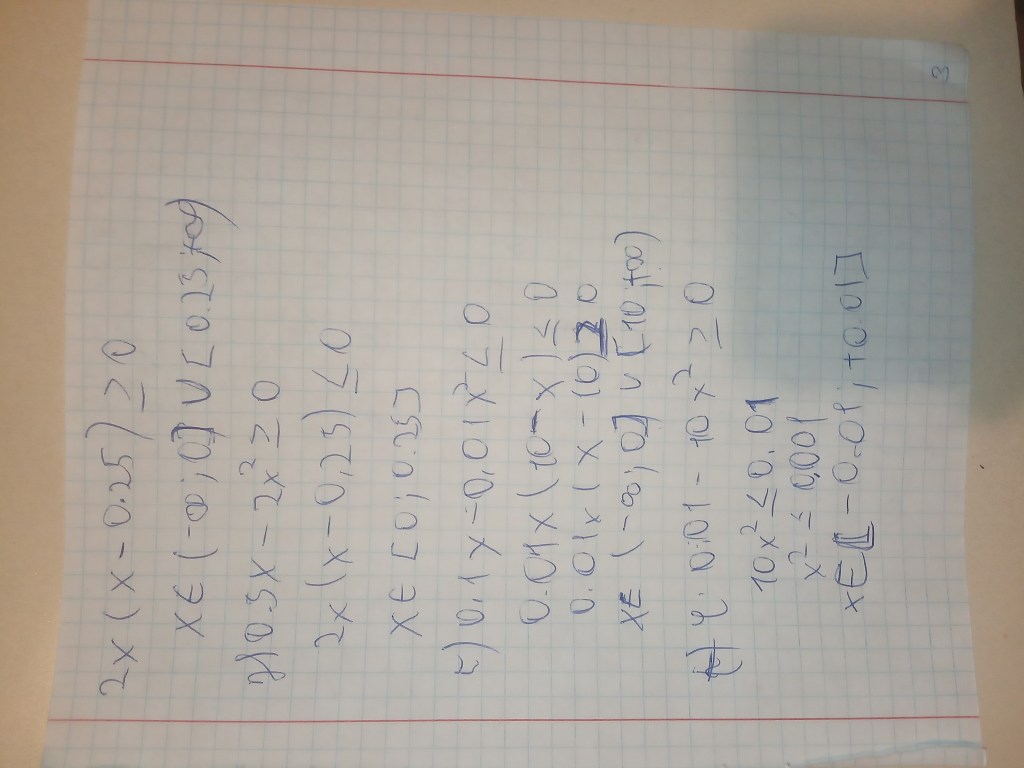 2x(x-0.25)≥0
x∈(-∞;0]∪[0.25;+∞)
2)0.5x-2x²≥0
2x(x-0,25)≤0
x∈[0;0.25]
0,1x-0,01x²≤0
0.01x(10-x)≤0
0.01x(x-10)≥0
x∈(-∞;0]∪[10;+∞)
0.01-10x²≥0
10x²≤0,01
x²≤0,001
x∈[-0.01;+0.01]
3